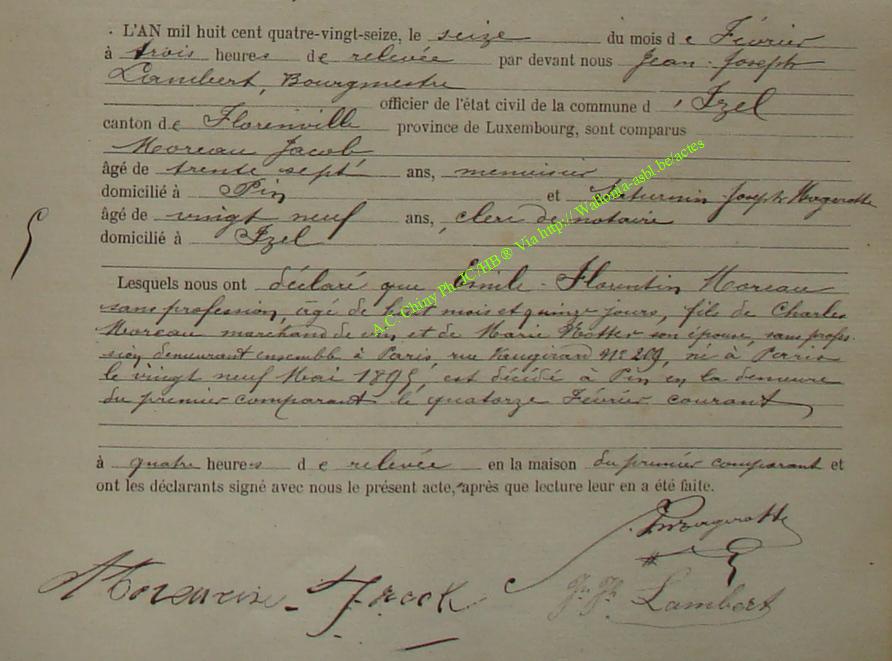 L'AN mil huit cent quatre-vingt-seize, le seize du mois de Février
à trois heures de relevée par devant nous Jean-Joseph
Lambert, Bourgmestre
officier de l'état civil de la commune d'Izel
canton de Florenville province de Luxembourg, sont comparus
Moreau Jacob
âgé de trente sept ans, menuisier
domicilié à Pin et Saturnin-Joseph
âgé de vingt neuf ans, clerc de notaire
domicilié à Izel
Lesquels nous ont déclaré que Emile-Florentin Moreau
sans profession, âgé de huit mois et quinze jours, fils de Charles
Moreau marchand de vin et de Marie son épouse, sans profes-
sion, demeurant ensemble à Paris, rue Vaugirard N° 209, né à
le vingt neuf Mai 1895, est décédé à Pin en la demeure
du premier comparant le quatorze Février courant
à quatre heures de relevée en la maison du premier comparant et
ont les déclarants signé avec nous le présent acte, après que lecture leur en a été faite.
Jn Jh Lambert
A.C. Chiny Ph. JC/HB® Via http://Wallonia-asbl.be/actes